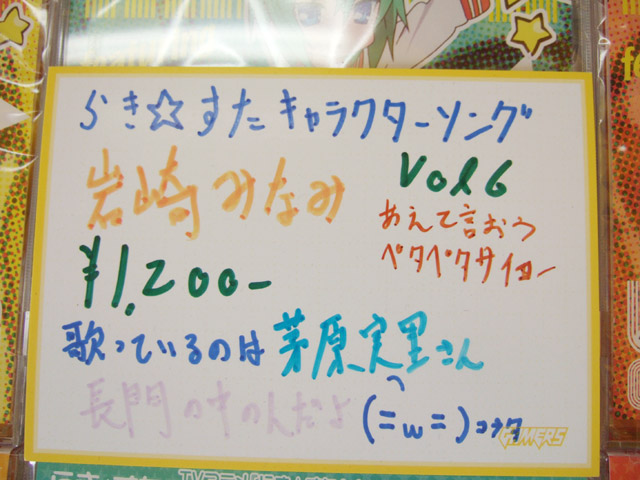 らき☆すた キャラクターソング
岩崎みなみ
Vol 6
あえて言おう
ペタペタサイコー
¥1,200-
歌っているのは 茅原実里さん
長門の中の人だよ
(=ω=) コナタ
GAMERS